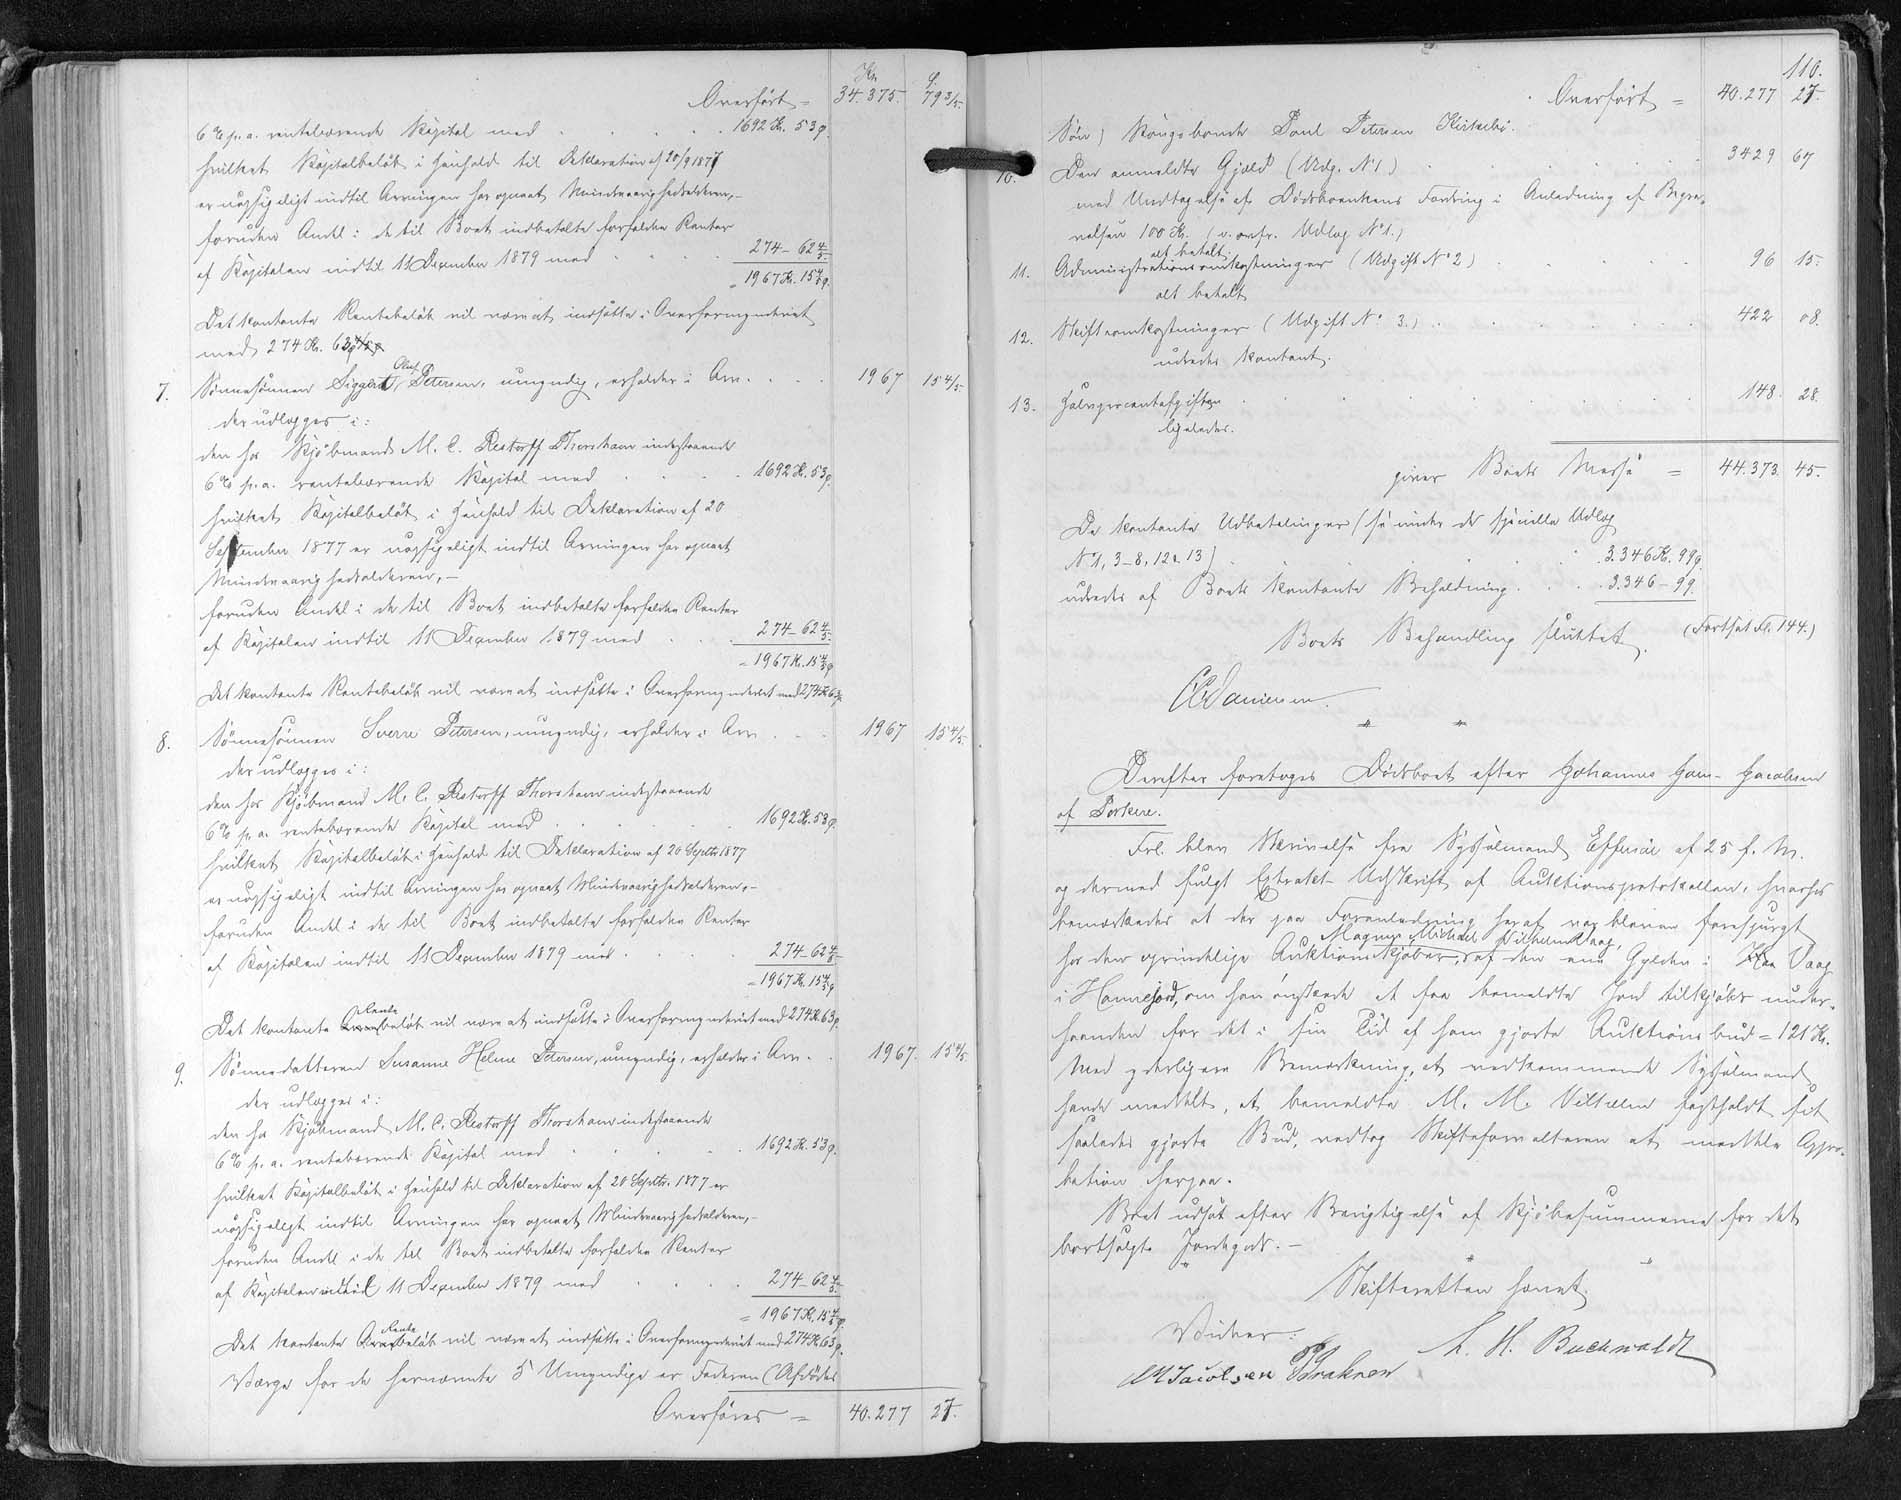 Kr. Ø.
Overført = 34.375. 79 3/5.
6% p. a. rentebærende Kapital med 1692 Kr. 53 Ø.
hvilket Kapitalbeløb i Henhold til Deklaration af 20/9 1877
er uopsigeligt indtil Arvingen har opnaaet Mindreaarighedsalderen, -
foruden Andel i de til Boet indbetalte forfaldne Renter
af Kapitalen indtil 11 December 1879 med 274 - 62 4/5
= 1967 Kr. 15 4/5 Ø.
Det kontante Rentebeløb vil være at indsætte i Overformynderiet
med 274 Kr. 63 Ø
7. Sønnesønnen Siggert Oluf Petersen, umyndig, erholder i Arv 1967 15 4/5.
der udlægges i:
den hos Kjøbmand M. C. Restorff Thorshavn indestaaende
6% p. a. rentebærende Kapital med 1692 Kr. 53 Ø.
hvilket Kapitalbeløb i Henhold til Deklaration af 20
September 1877 er uopsigeligt indtil Arvingen har opnaaet
Mindreaarighedsalderen, -
foruden Andel i de til Boet indbetalte forfaldne Renter
af Kapitalen indtil 11 December 1879 med 274 - 62 4/5
= 1967 Kr. 15 4/5 Ø
Det kontante Rentebeløb vil være at indsætte i Overformynderiet med 274 Kr 63 Ø.
8. Sønnesønnen Sverre Petersen, umyndig, erholder i Arv 1967 15 4/5.
der udlægges i:
den hos Kjøbmand M. C. Restorff Thorshavn indestaaende
6% p. a. rentebærende Kapital med 1692 Kr. 53 Ø.
hvilket Kapitalbeløb i Henhold til Deklaration af 20 Septbr 1877
er uopsigeligt indtil Arvingen har opnaaet Mindreaarighedsalderen, -
foruden Andel i de til Boet indbetalte forfaldne Renter
af Kapitalen indtil 11 December 1879 med 274 - 62 4/5
= 1967 Kr. 15 4/5 Ø
Rente
Det kontante beløb vil være at indsætte i Overformynderiet med 274 Kr. 63 Ø.
9. Sønnedatteren Susanne Helene Petersen, umyndig, erholder i Arv 1967. 15 4/5
der udlægges i:
den hos Kjøbmand M. C. Restorff Thorshavn indestaaende
6% p. a. rentebærende Kapital med 1692 Kr. 53 Ø.
hvilket Kapitalbeløb i Henhold til Deklaration af 20 Septbr. 1877 er
uopsigeligt indtil Arvingen har opnaaet Mindreaarighedsalderen, -
foruden Andel i de til Boet indbetalte forfaldne Renter
af Kapitalen indtil 11 December 1879 med 274 - 62 4/5
= 1967 Kr. 15 4/5 Ø.
Rente
Det kontante beløb vil være at indsætte i Overformynderiet med 274 Kr 63 Ø.
Værge for de hernævnte 5 Umyndige er Faderen (Afdødes
Overføres = 40.277 27.
110.
Overført = 40.277 27.
Søn) Kongsbonde Poul Petersen Kirkebø.
10. Den anmeldte Gjæld (Udg. No 1) 3429 67
med Undtagelse af Dødsboenkens Fordring i Anledning af Begra-
velsen 100 Kr. (v. ovfr. Udlæg No 1.)
alt betalt.
11. Administrationsomkostninger (Udgift No 2) 96 15.
alt betalt
12. Skifteomkostninger (Udgift No. 3.) 422 08.
udredes kontant.
13. Halvprocentafgiften 148. 28.
ligeledes.
giver Boets Masse = 44.373. 45.
De kontante Udbetalinger (se under de specielle Udlæg
No 1, 3-8, 12 & 13) 3.346 Kr. 99 Ø.
udredes af Boets kontante Beholdning 3.346 - 99.
Boets Behandling sluttet. (Fortsat Fol. 144.)
CC Danielsen.
Derefter foretoges Dødsboet efter Johannes Ham- Jacobsen
af Porkere.
Frl. blev Skrivelse fra Sysselmand Effersøe af 25 f. M.
og dermed fulgt Extrakt-Udskrift af Auktionsprotokollen, hvorhos
bemærkedes at der paa Foranledning heraf var bleven forespurgt
Magnus Michael Vilhelm Vaag,
hos den oprindelige Auktionskjøber, af den ene Gylden i Vaag
i Hannesjord, om han ønskede at faa bemeldte Jord tilkjøbt under-
haanden for det i sin Tid af ham gjorte Auktionsbud = 121 Kr.
Med yderligere Bemærkning, at vedkommende Sysselmand
havde meddelt, at bemeldte M. M. Vilhelm fastholdt sit
saaledes gjorte Bud, vedtog Skifteforvalteren at meddele Appro-
bation herpaa.
Boet udsat efter Berigtigelse af Kjøbesummerne for det
bortsolgte Jordegods. -
Skifteretten hævet.
Vidner: L. H. Buchwaldt
M Jacobsen